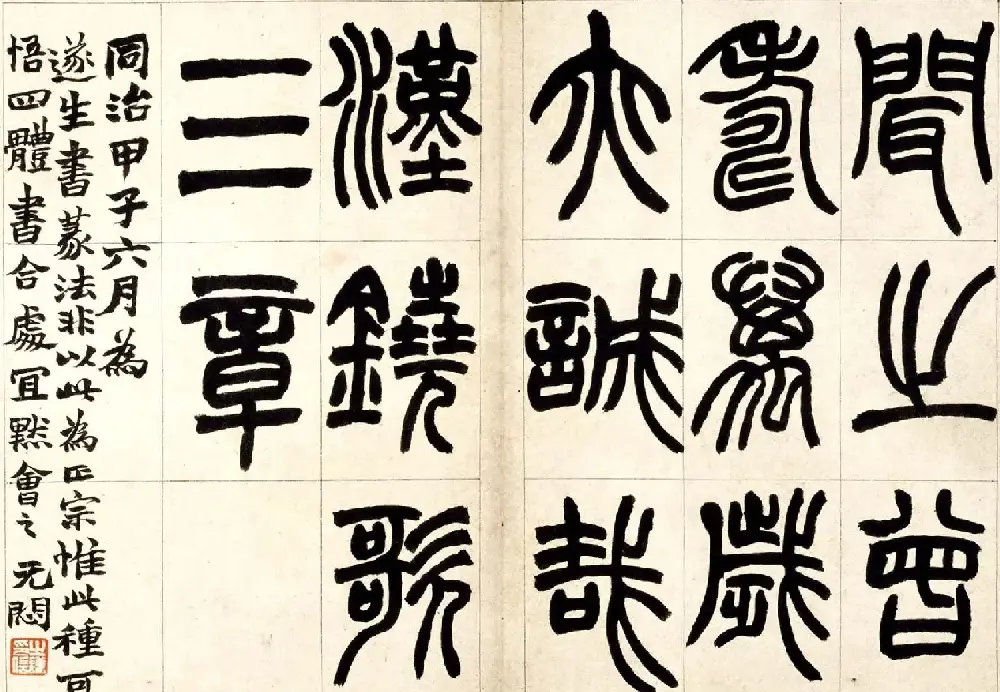 聞之曾
壽萬歲
亦誠哉
漢鐃歌
三章
同治甲子六月為
遂生書篆法非以此為正宗惟此種可
悟四體書合處冝默會之 无悶